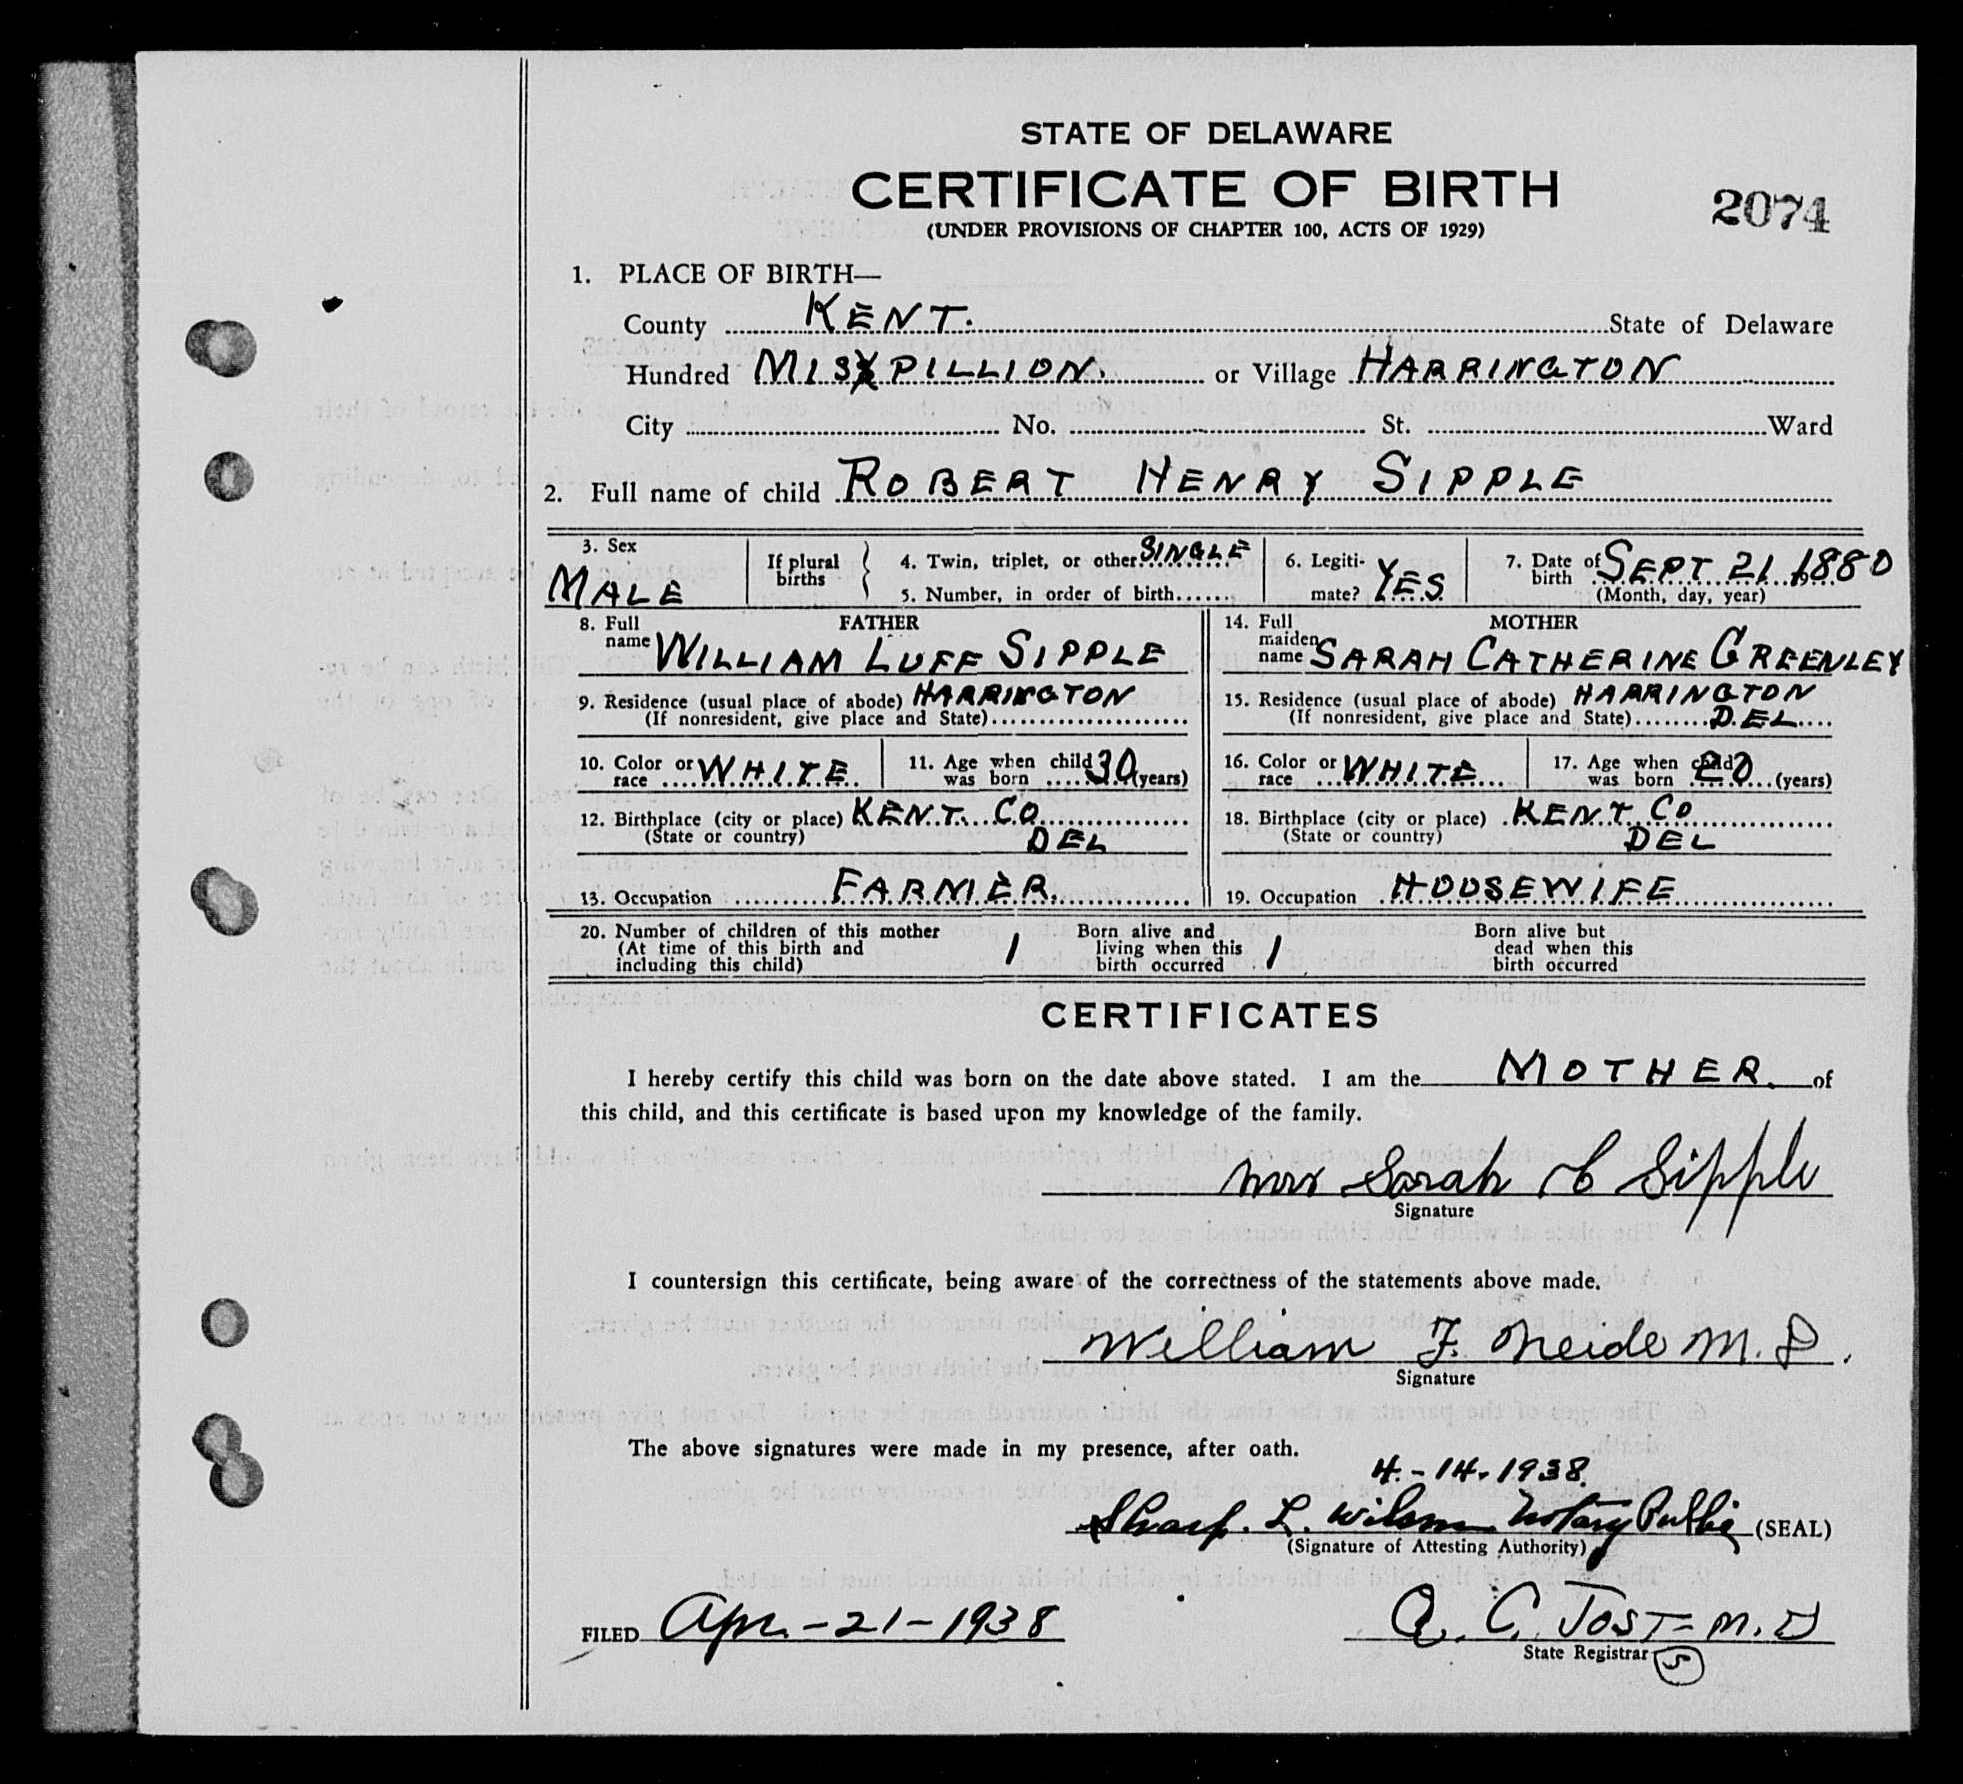 STATE OF DELAWARE
CERTIFICATE OF BIRTH
2074
(UNDER PROVISIONS OF CHAPTER 100, ACTS OF 1929)
1. PLACE OF BIRTH—
County KENT. State of Delaware
Hundred MISPILLION. or Village HARRINGTON
City No. St. Ward
2. Full name of child ROBERT HENRY SIPPLE
3. Sex MALE If plural births 4. Twin, triplet, or other SINGLE 5. Number, in order of birth 6. Legitimate? YES 7. Date of birth SEPT 21 1880 (Month, day, year)
FATHER MOTHER
8. Full name WILLIAM LUFF SIPPLE 14. Full maiden name SARAH CATHERINE GREENLEY
9. Residence (usual place of abode) HARRINGTON 15. Residence (usual place of abode) HARRINGTON
(If nonresident, give place and State) (If nonresident, give place and State) DEL
10. Color or race WHITE 11. Age when child was born 30 (years) 16. Color or race WHITE 17. Age when child was born 20 (years)
12. Birthplace (city or place) KENT. CO 18. Birthplace (city or place) KENT CO
(State or country) DEL (State or country) DEL
13. Occupation FARMER. 19. Occupation HOUSEWIFE
20. Number of children of this mother 1 Born alive and 1 Born alive but
(At time of this birth and living when this dead when this
including this child) birth occurred birth occurred
CERTIFICATES
I hereby certify this child was born on the date above stated. I am the MOTHER. of
this child, and this certificate is based upon my knowledge of the family.
Mrs Sarah C Sipple
Signature
I countersign this certificate, being aware of the correctness of the statements above made.
William F. Neide M.D.
Signature
The above signatures were made in my presence, after oath.
4-14-1938
Sharp. L. Wilson Notary Public (SEAL)
(Signature of Attesting Authority)
FILED Apr.-21-1938 A. C. JOST-M.D
State Registrar
5